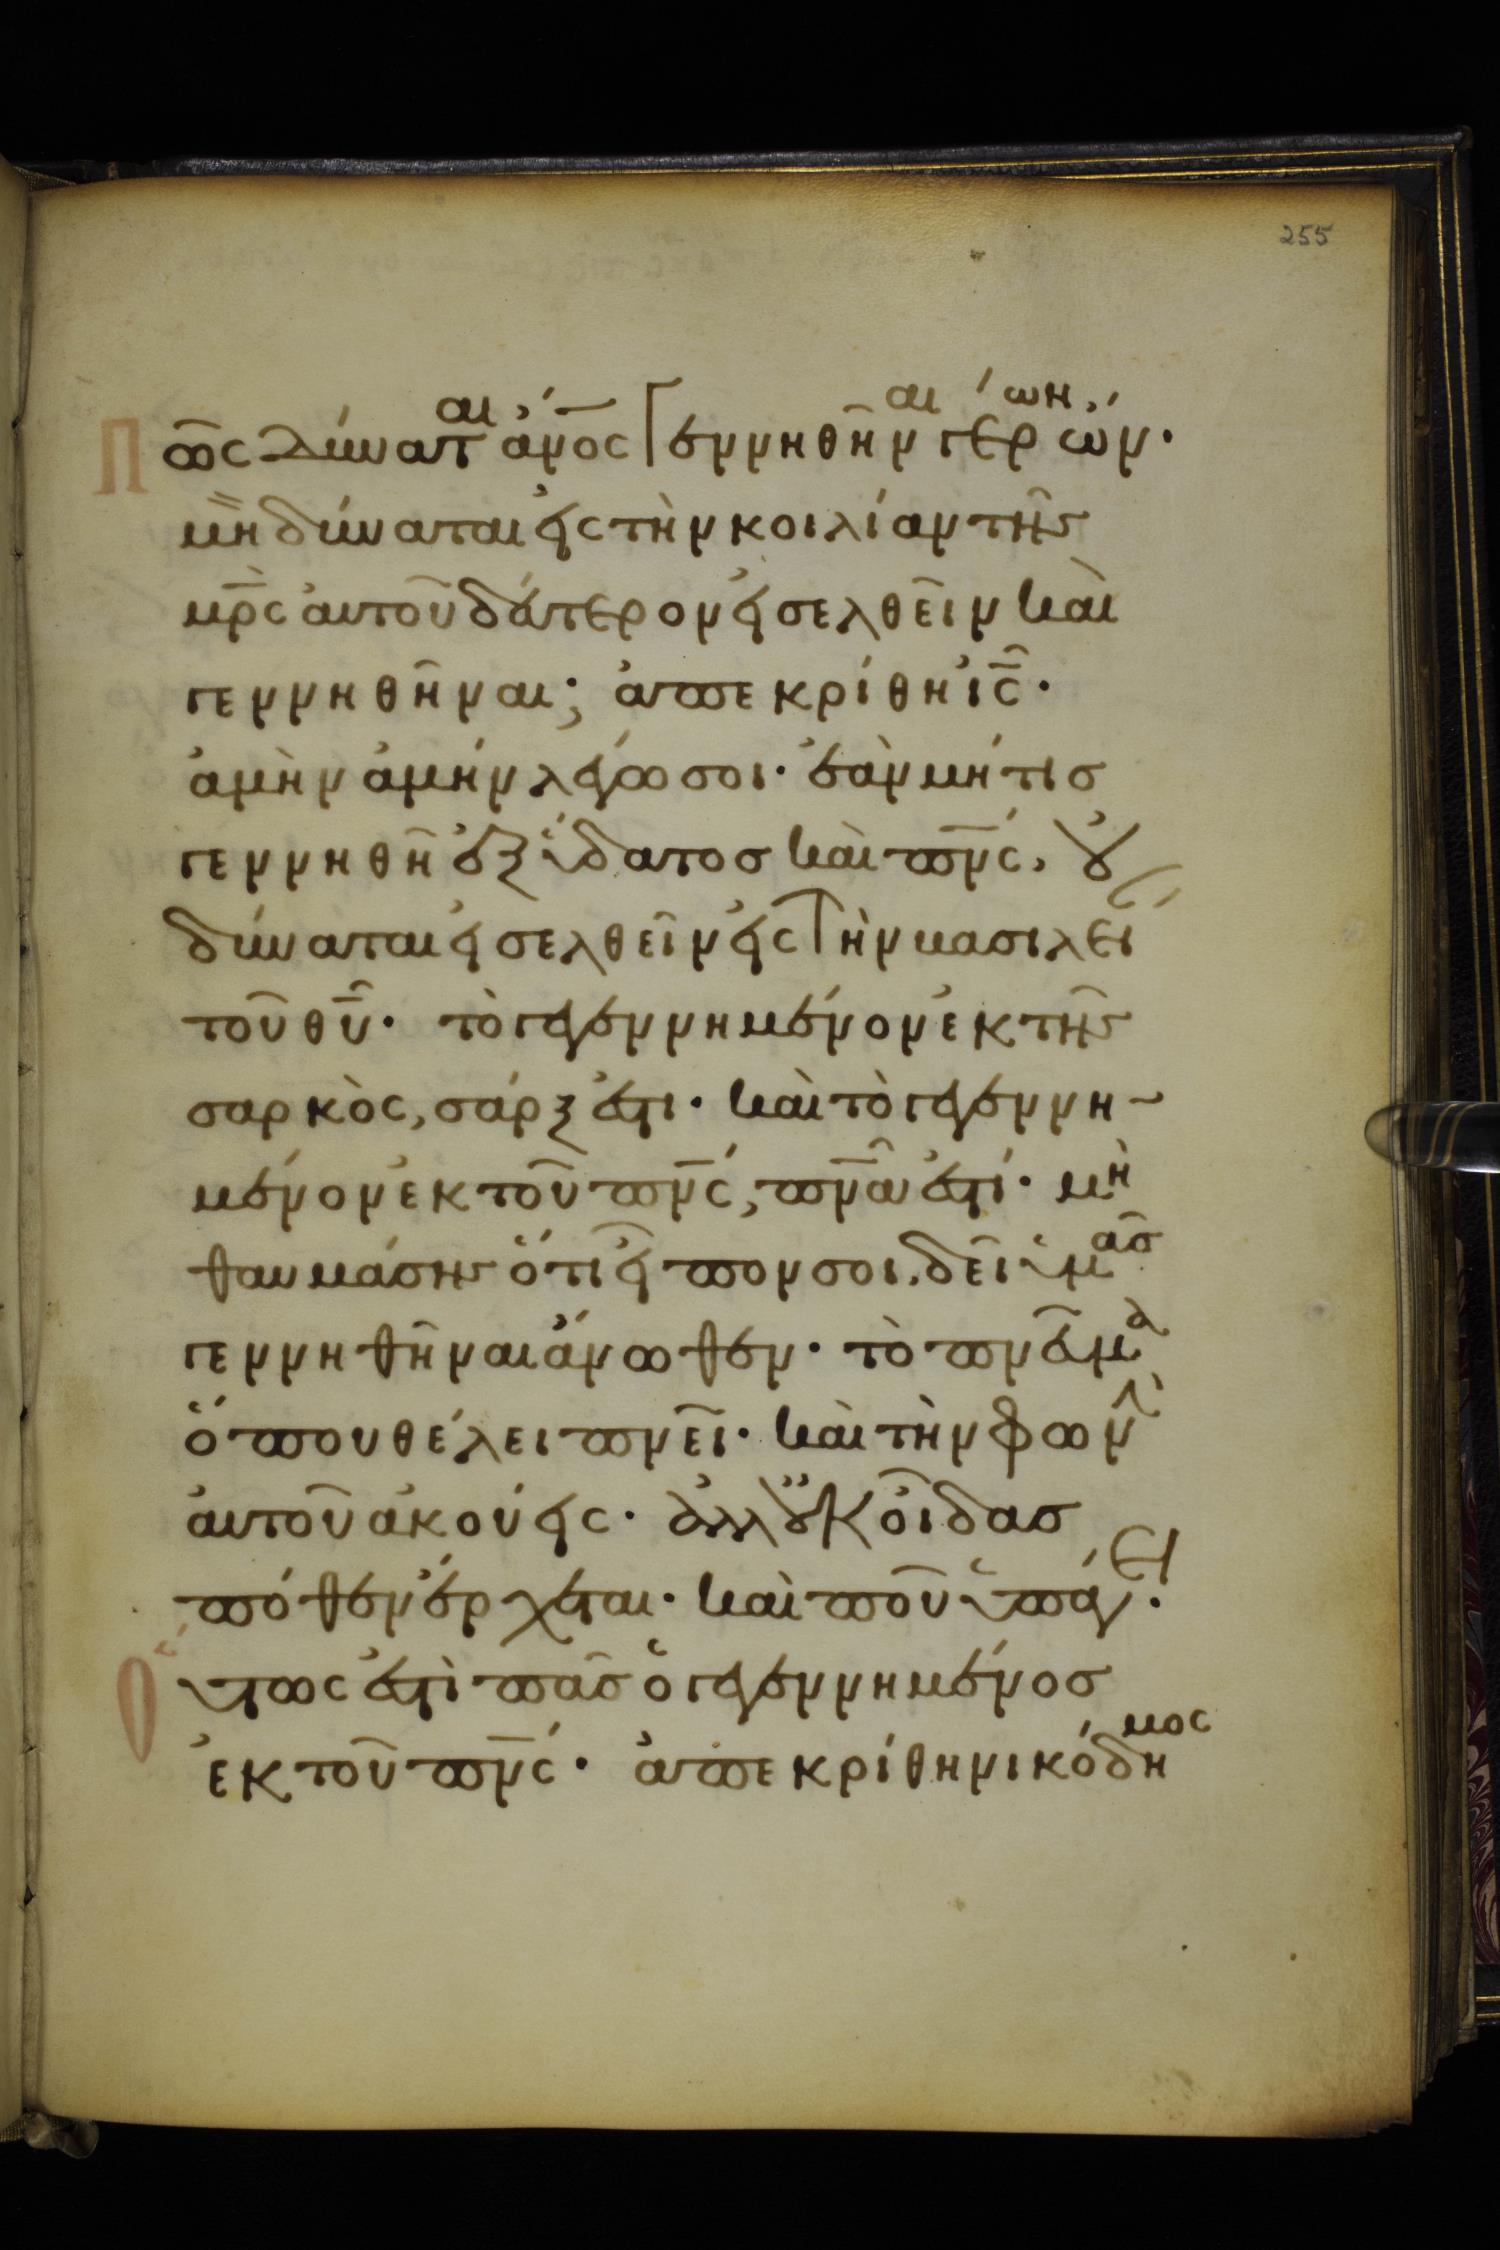 255
Πῶς δύναται ἄν̅ο̅ς γεννηθῆναι γέρων ὤν·
μὴ δύναται εἰς τὴν κοιλίαν τῆς
μ̅ρ̅ς αὐτοῦ δεύτερον εἰσελθεῖν καὶ
γεννηθῆναι; ἀπεκρίθη ι̅ς̅·
ἀμὴν ἀμὴν λέγω σοι· ἐὰν μή τισ
γεννηθῆ ἐξ ὕδατοσ καὶ π̅ν̅ς, οὐ
δύναται εἰσελθεῖν εἰς τὴν βασιλεί
τοῦ θ̅υ̅· τὸ γεγεννημένον ἐκ τῆς
σαρκὸς, σάρξ ἐστι· καὶ τὸ γεγεννη-
μένον ἐκ τοῦ π̅ν̅ς, π̅ν̅α ἐστί· μὴ
θαυμάσης ὅτι εἶπον σοι. δεῖ ὑμᾶσ
γεννηθῆναι ἄνωθεν· τὸ πνεῦμα
ὅπου θέλει πνεῖ· καὶ τὴν φων
αὐτοῦ ἀκούεις· ἀλλ οὐκ οἶδασ
πόθεν ἔρχεται· καὶ ποῦ ὑπάγει·
Οὕτως ἐστὶ πᾶσ ὁ γεγεννημένοσ
ἐκ τοῦ π̅ν̅ς· ἀπεκρίθη νικόδημος